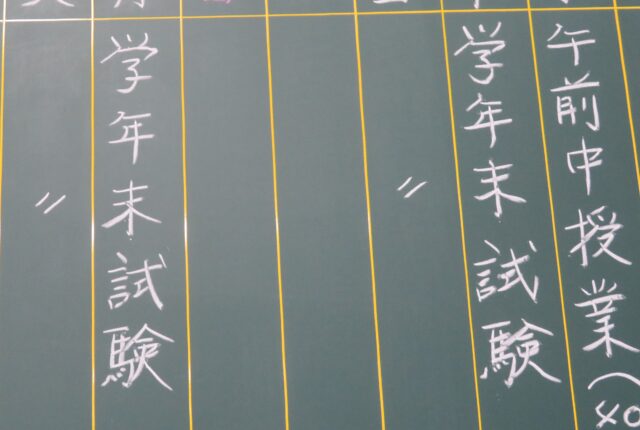 午前中授業(40
学年末試験
〃
学年末試験
〃